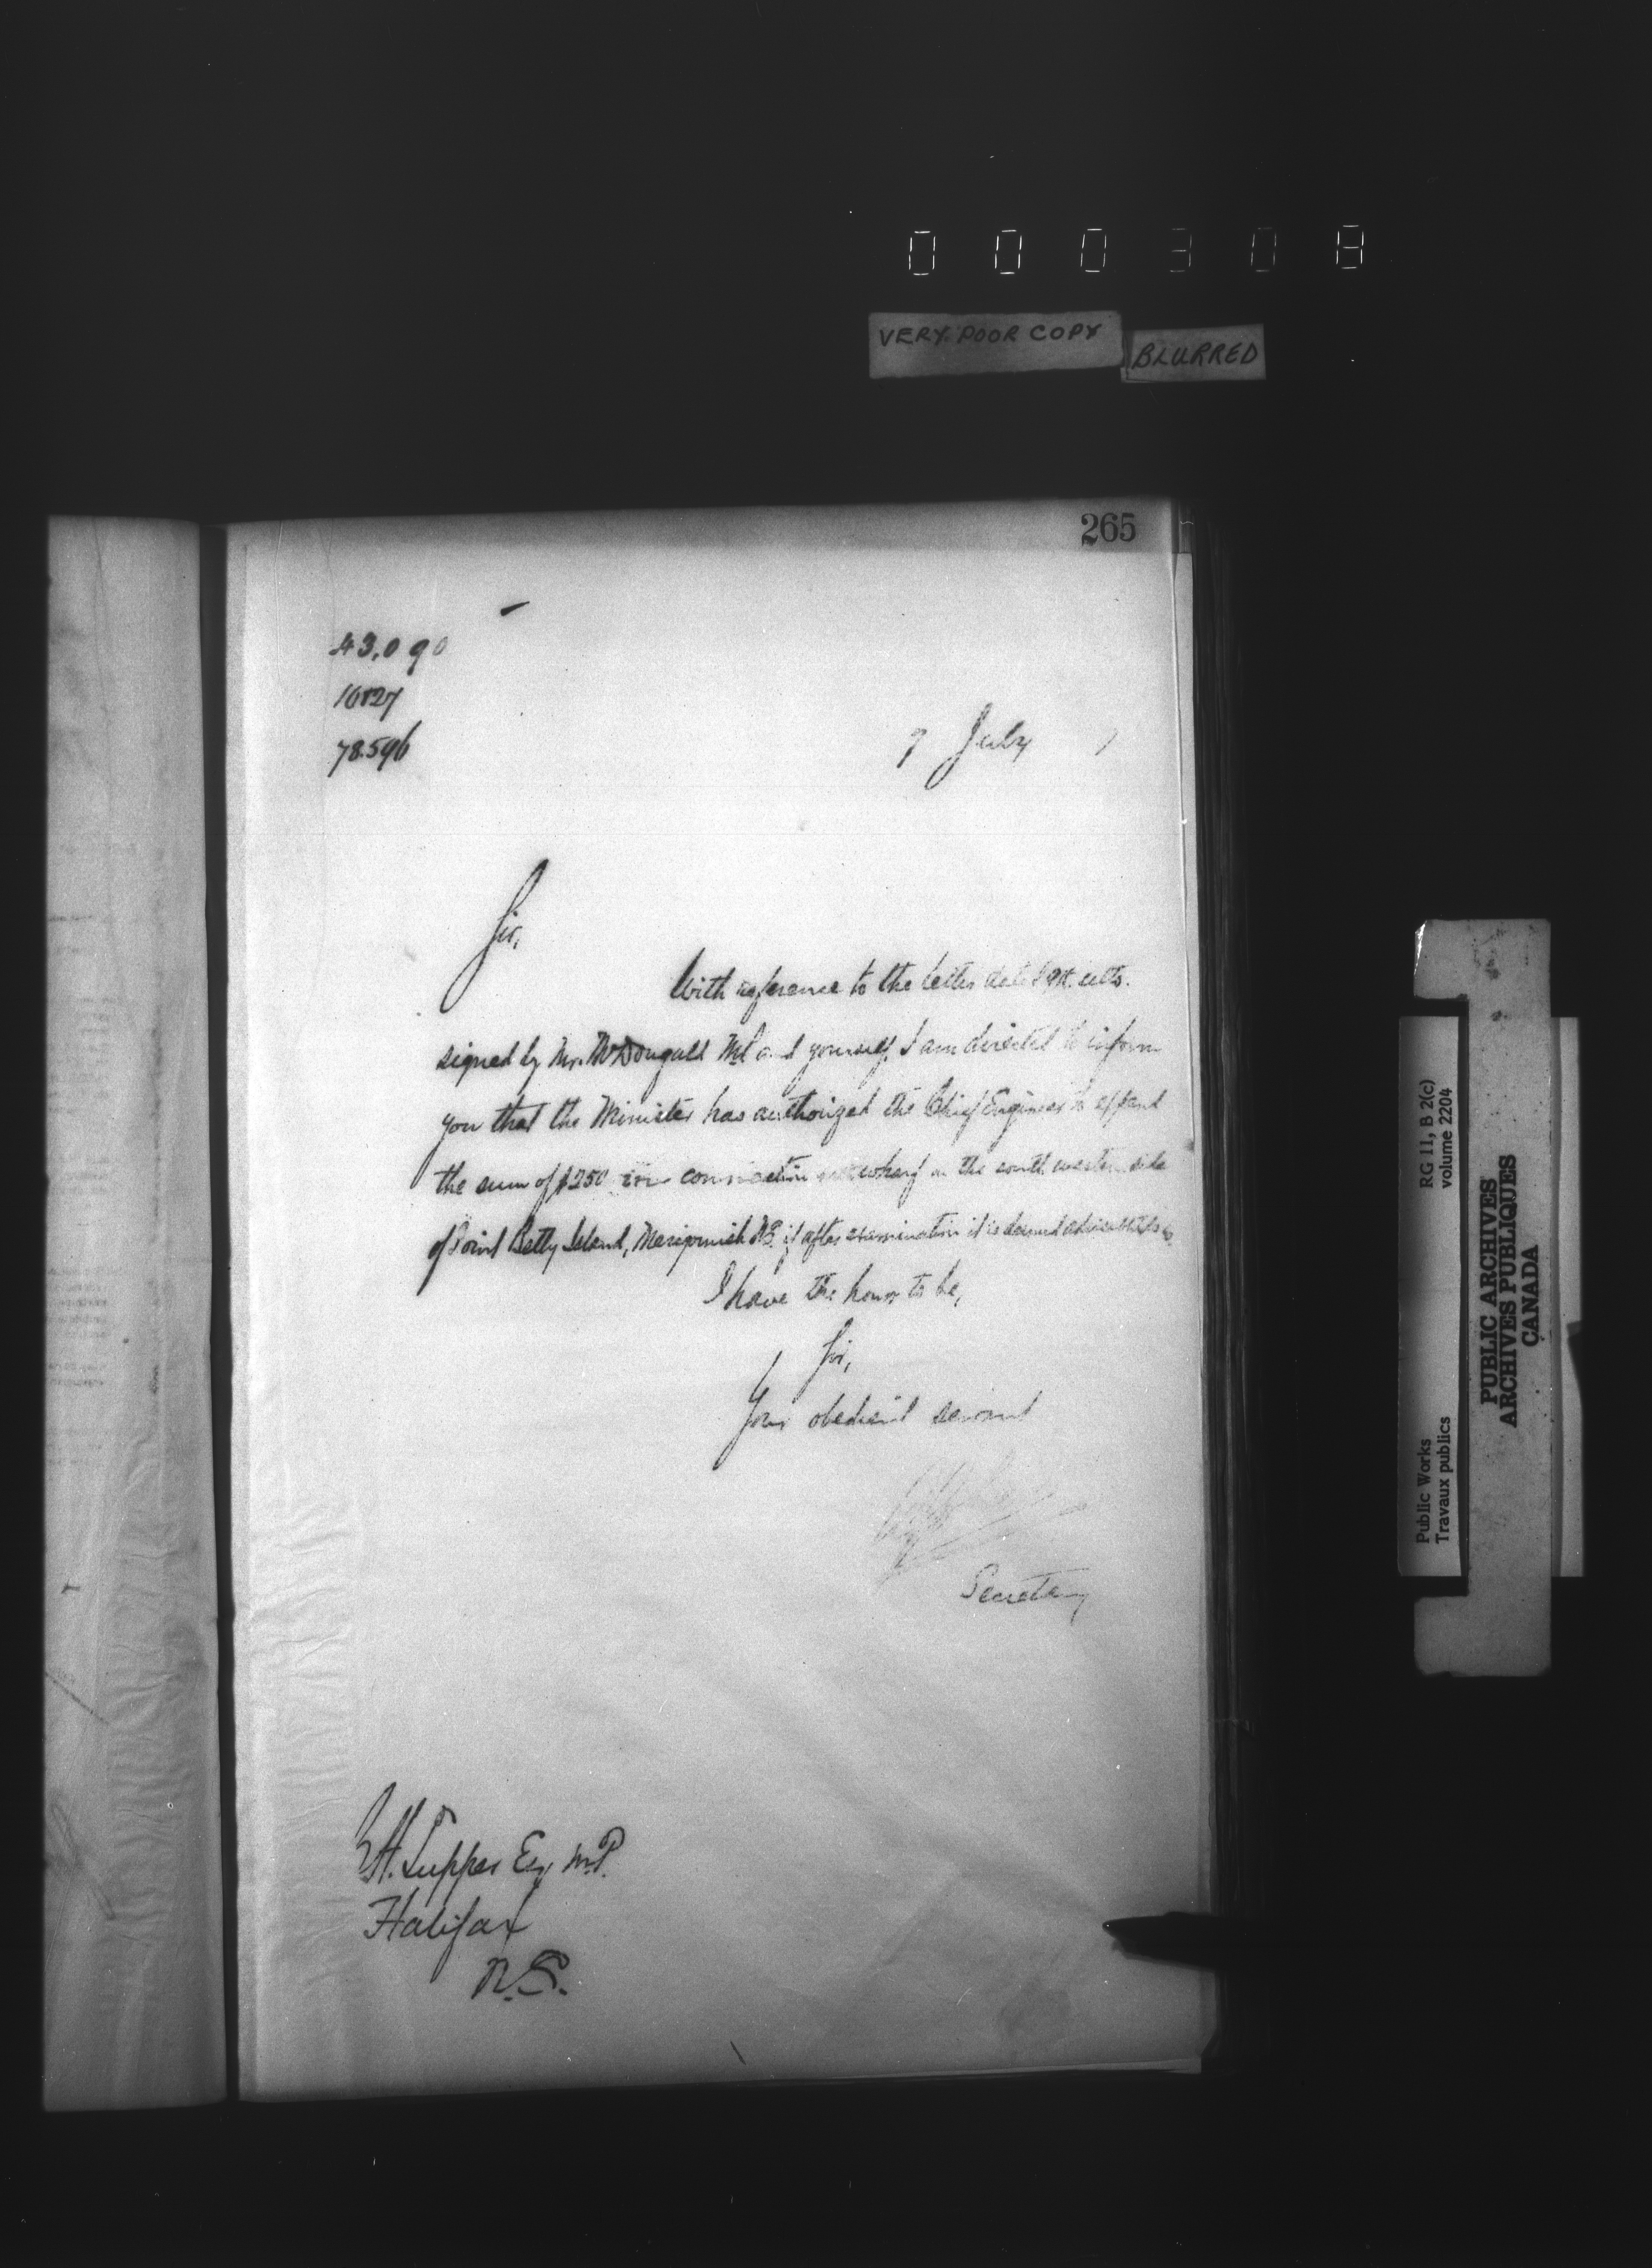 000308
VERY POOR COPY
BLURRED
265
43,090
10827
78.596
7 July
Sir,
With reference to the letter dated 9th ulto.
signed by Mr. McDougall MP and yourself, I am directed to inform
you that the Minister has authorized the Chief Engineer to expend
the sum of $250 in connection with wharf on the south western side
of Point Betty Island, Merigomish N.S. if after examination it is deemed advisable
I have the honor to be,
Sir,
Your obedient servant
Secretary
Tupper Esq. M.P.
Halifax
N.S.
Public Works
Travaux publics
RG 11, B 2(c)
volume 2204
PUBLIC ARCHIVES
ARCHIVES PUBLIQUES
CANADA